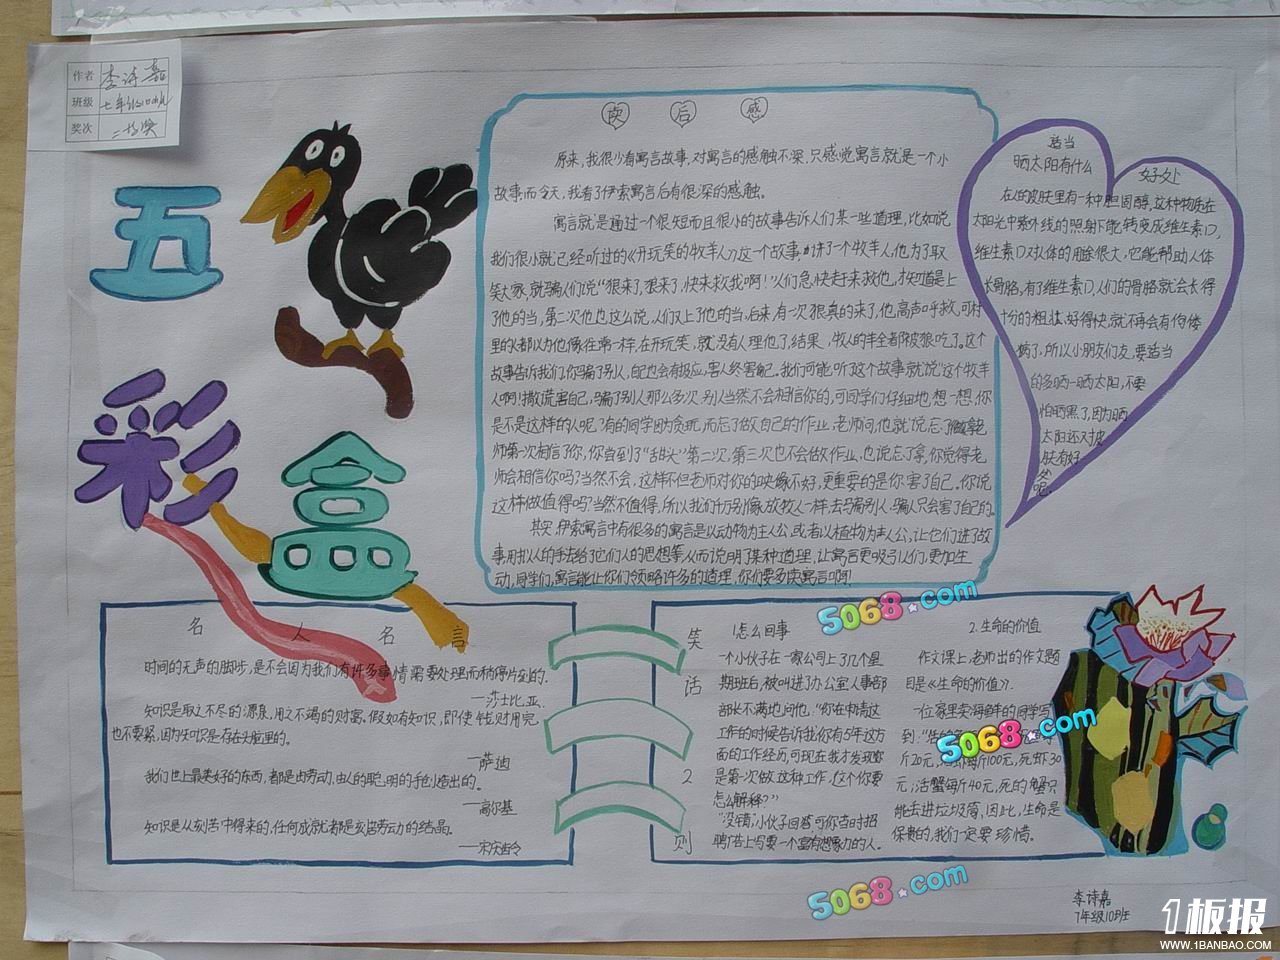 作者 李诗嘉
班级 七年级10班
奖次 二等奖
五
彩
盒
读 后 感
原来,我很少看寓言故事,对寓言的感触不深,只感觉寓言就是一个小
故事,而今天,我看了伊索寓言后有很深的感触。
寓言就是通过一个很短而且很小的故事告诉人们某一些道理,比如说
我们很小就已经听过的《开玩笑的牧羊人》这个故事,讲了一个牧羊人,他为了取
笑大家,就骗人们说“狼来了,狼来了,快来救我啊!”人们急快赶来救他,才知道是上
了他的当,第二次他也这么说,人们又上了他的当,后来,有一次狼真的来了,他高声呼救,可村
里的人都以为他像往常一样,在开玩笑,就没有人理他了,结果,牧人的羊全都被狼吃了。这个
故事告诉我们,你骗了别人,自己也会有报应,害人终害己,我们可能听这个故事就说“这个牧羊
人啊!撒谎害自己,骗了别人那么多次,别人当然不会相信你的,可同学们仔细地想一想,你
是不是这样的人呢?有的同学因为贪玩,而忘了做自己的作业,老师问,他就说忘了做拿老
师第一次相信了你,你尝到了“甜头”第二次,第三次也不会做作业,也说忘了拿,你觉得老
师会相信你吗?当然不会,这样不但老师对你的映像不好,更重要的是你害了自己。你说
这样做值得吗?当然不值得,所以我们千万别像放牧人一样,去骗别人,骗人只会害了自己的。
其实,伊索寓言中有很多的寓言是以动物为主人公,或者以植物为主人公,让它们进了故
事,用拟人的手法给了它们人的思想等,从而说明了某种道理,让寓言更吸引人们,更加生
动,同学们,寓言能让你们领略许多的道理,你们要多读寓言啊!
适当
晒太阳有什么
好处
在人的皮肤里有一种胆固醇,这种物质在
太阳光中紫外线的照射下能转变成维生素D,
维生素D对人体的用途很大,它能帮助人体
长骨骼,有了维生素D,人们的骨骼就会长得
十分的粗壮,好得快,就不再会有佝偻
病了,所以小朋友们友,要适当
的多晒一晒太阳,不要
怕晒黑了,因为晒
太阳还对皮
肤有好
处
呢。
名 人 名 言
时间的无声的脚步,是不会因为我们有许多事情需要处理而稍停片刻的.
——莎士比亚.
知识是取之不尽的源泉,用之不竭的财富,假如有知识,即使钱财用完
也不要紧,因为知识是存在头脑里的。
——萨迪
我们世上最美好的东西,都是由劳动,由人的聪明的手创造出的。
——高尔基
知识是从刻苦中得来的,任何成就都是刻苦劳动的结晶。
——宋庆龄
笑
话
2
则
1怎么回事
一个小伙子在一家公司上了几个星
期班后,被叫进了办公室人事部
部长不满地问他:“你在申请这
工作的时候告诉我你有5年这方
面的工作经历,可现在我才发现你
是第一次做这种工作,这个你要
怎么解释?”
“没错,小伙子回答,可你当时招
聘广告上写要一个富有想象力的人。
2.生命的价值
作文课上,老师出的作文题
目是《生命的价值》.
一位家里卖海鲜的同学写
斤20元,活虾每斤100元,死虾30
元;活蟹每斤40元,死的蟹只
能丢进垃圾筒,因此,生命是
保贵的,我们一定要珍惜。
5068.com
5068.com
5068.com
李诗嘉
7年级10班
1板报
WWW.1BANBAO.COM